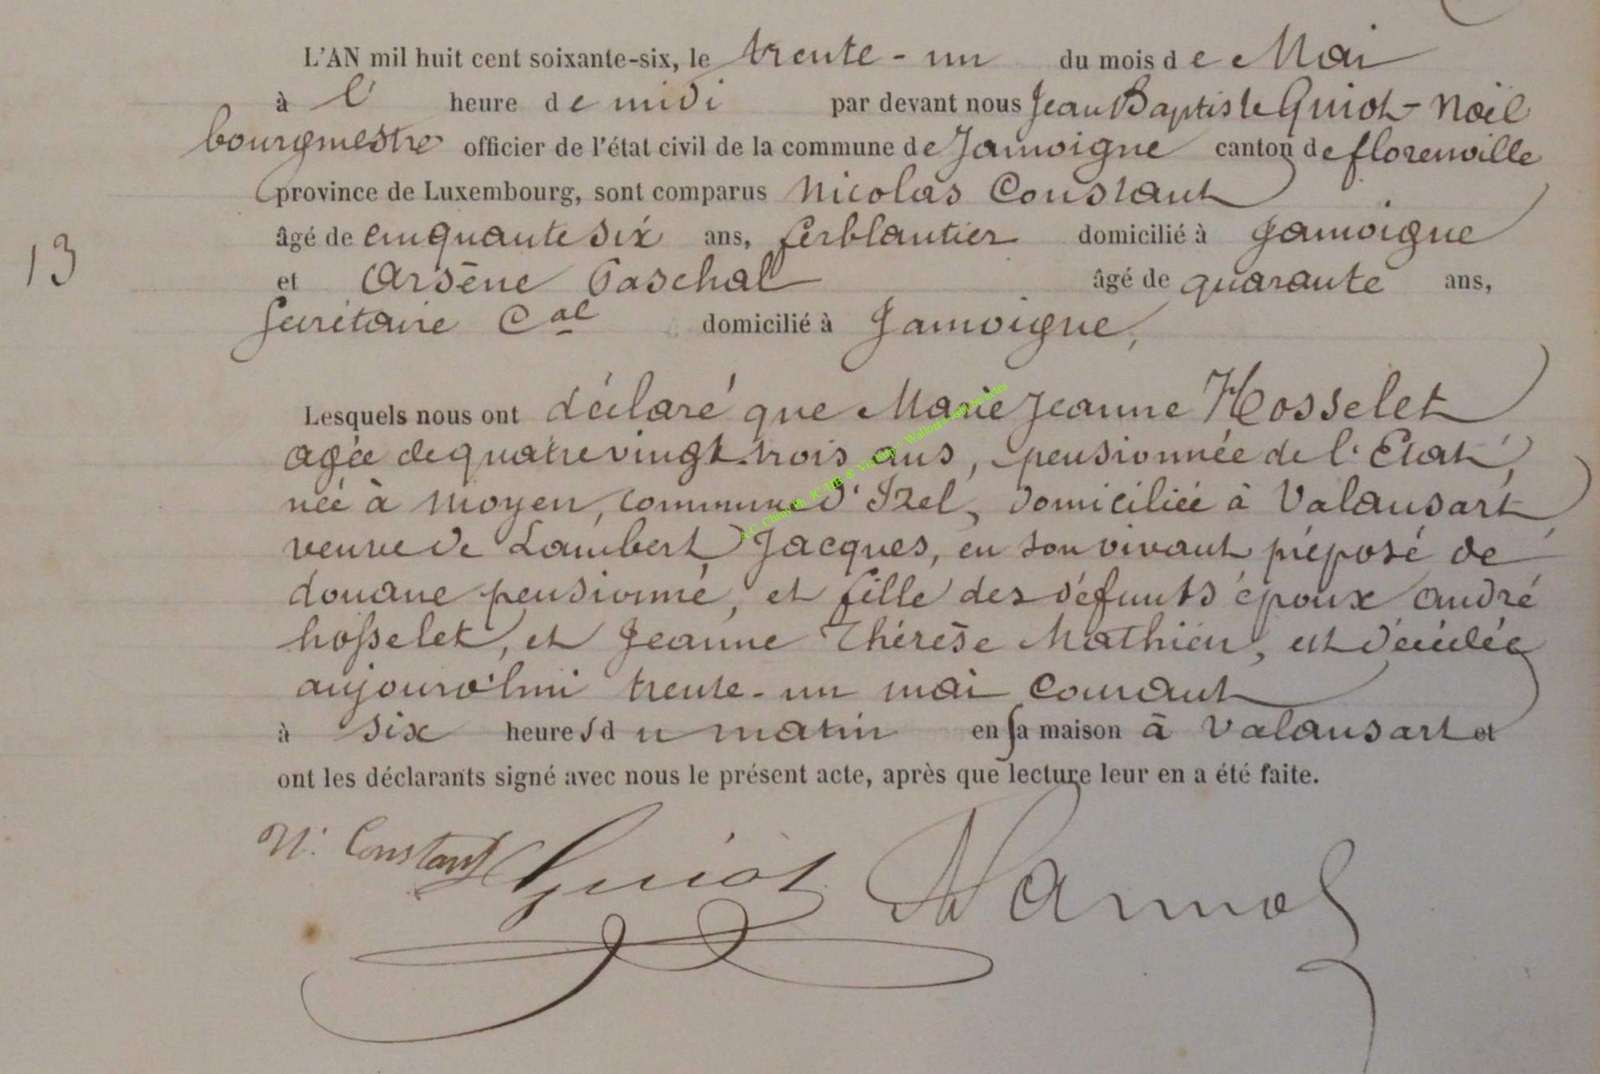 L'AN mil huit cent soixante-six, le trente-un du mois de Mai
à l' heure de midi par devant nous Jean Baptiste Guiot-Noël
bourgmestre officier de l'état civil de la commune de Jamoigne canton de florenville
province de Luxembourg, sont comparus Nicolas Constant
âgé de cinquante six ans, ferblantier domicilié à Jamoigne
13
et Arsène Paschal âgé de quarante ans,
Secrétaire Cal domicilié à Jamoigne,
Lesquels nous ont déclaré que Marie Jeanne Hosselet
agée de quatre vingt trois ans, pensionnée de l'Etat,
née à Moyen, commune d'Izel, domiciliée à Valansart
veuve de Lambert Jacques, en son vivant préposé de
douane pensionné, et fille des défunts époux andré
hosselet, et Jeanne Thérèse Mathieu, est décédée
aujourd'hui trente-un mai courant
à six heures du matin en sa maison à Valansart et
ont les déclarants signé avec nous le présent acte, après que lecture leur en a été faite.
N. Constant Guiot